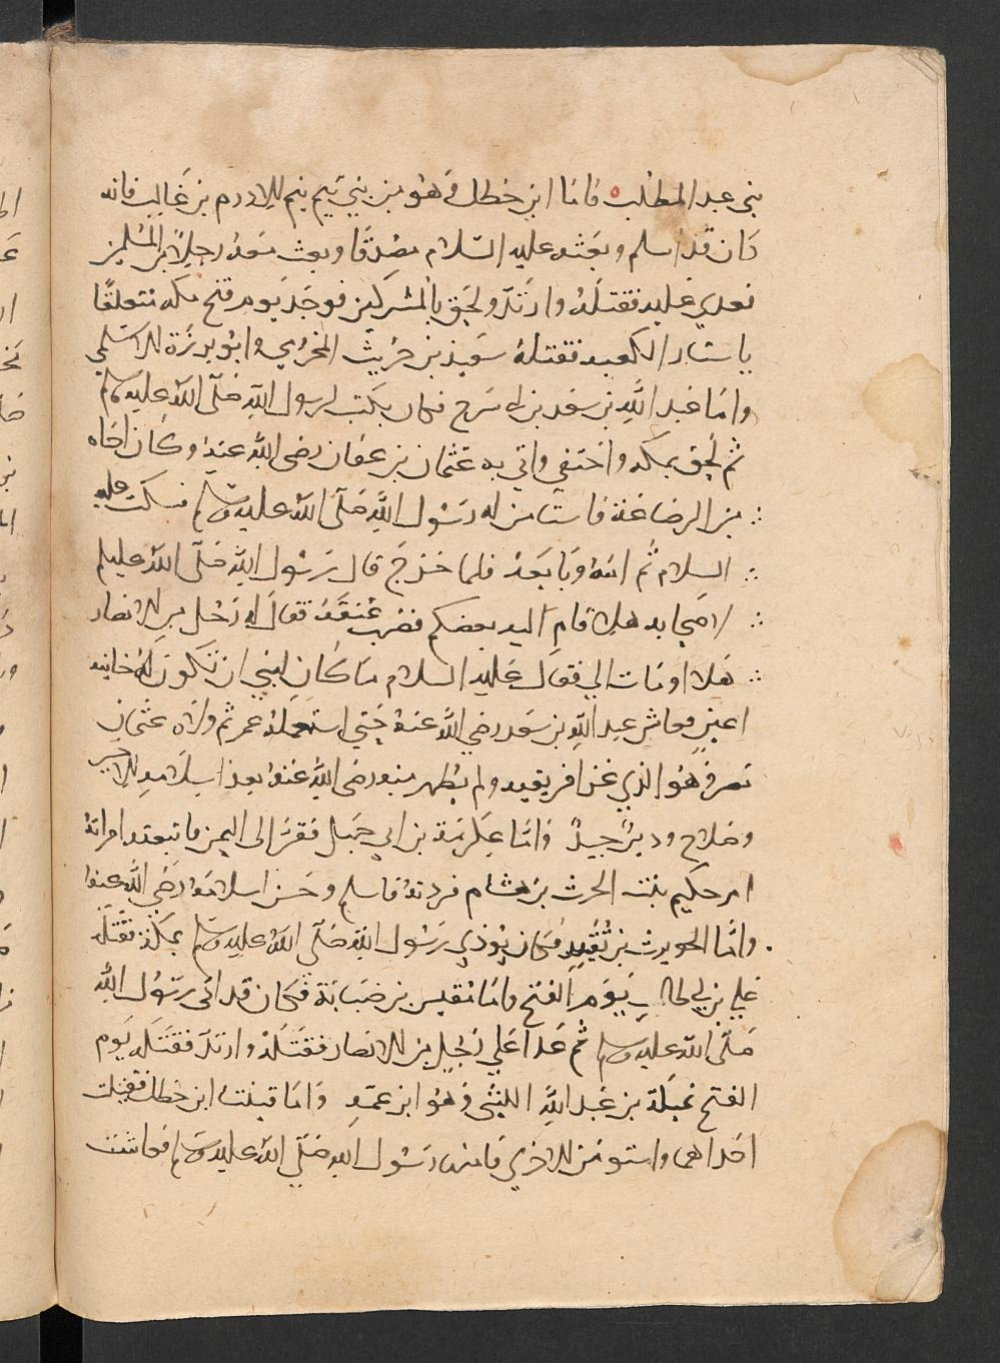 بني عبد المطلب ه فاما ابن خطل فهو من بني تيم بنم الادرم بن غالب فانه
كان قد اسلم وبعثه عليه السلام مصدقا وبعث معه رجلا من المسلمين
فعدي عليه فقتله وارتد ولحق بالمشركين فوجد يوم فتح مكه متعلقا
باستار الكعبه فقتله سعيد بن حريث المخزومي وابو برزة الاسلمي
واما عبد الله بن سعد بن ابي سرح فكان يكتب لرسول الله صلى الله عليه وسلم
ثم لحق بمكه واختفي واتي به عثمان بن عفان رضى الله عنه وكان اخاه
من الرضاعة فاستامن له رسول الله صلى الله عليه وسلم فسكت عليه
السلام ثم امنه وبايعه فلما خرج قال رسول الله صلى الله عليه وسلم
لاصحابه هلا قام اليه بعضكم فضرب عنقه فقال له رجل من الانصار
هلا اومات الي فقال عليه السلام ما كان لنبي ان تكون له خاينه
اعين فعاش عبد الله بن سعد رضي الله عنه حتي استعمله عمر ثم ولاه عثمان
مصر فهو الذي غزا افريقيه ولم يظهر منه رضى الله عنه بعد اسلامه الا خير
وصلاح ودين جيد واما عكرمة بن ابي جهل ففر الى اليمن فاتبعته امراته
ام حكيم بنت الحرث بن هشام فردته فاسلم وحسن اسلامه رضي الله عنه
واما الحويرث بن نقيد فكان يوذي رسول الله صلى الله عليه وسلم بمكة فقتله
علي بن ابي طالب يوم الفتح واما مقيس بن صبابة فكان قد اتى رسول الله
صلى الله عليه وسلم ثم عدا علي رجل من الانصار فقتله وارتد فقتله يوم
الفتح نميلة بن عبد الله الليثى وهو ابن عمه واما قينتا ابن خطل فقتلت
احداهما واستومن للاخرى فامنها رسول الله صلى الله عليه وسلم فعاشت